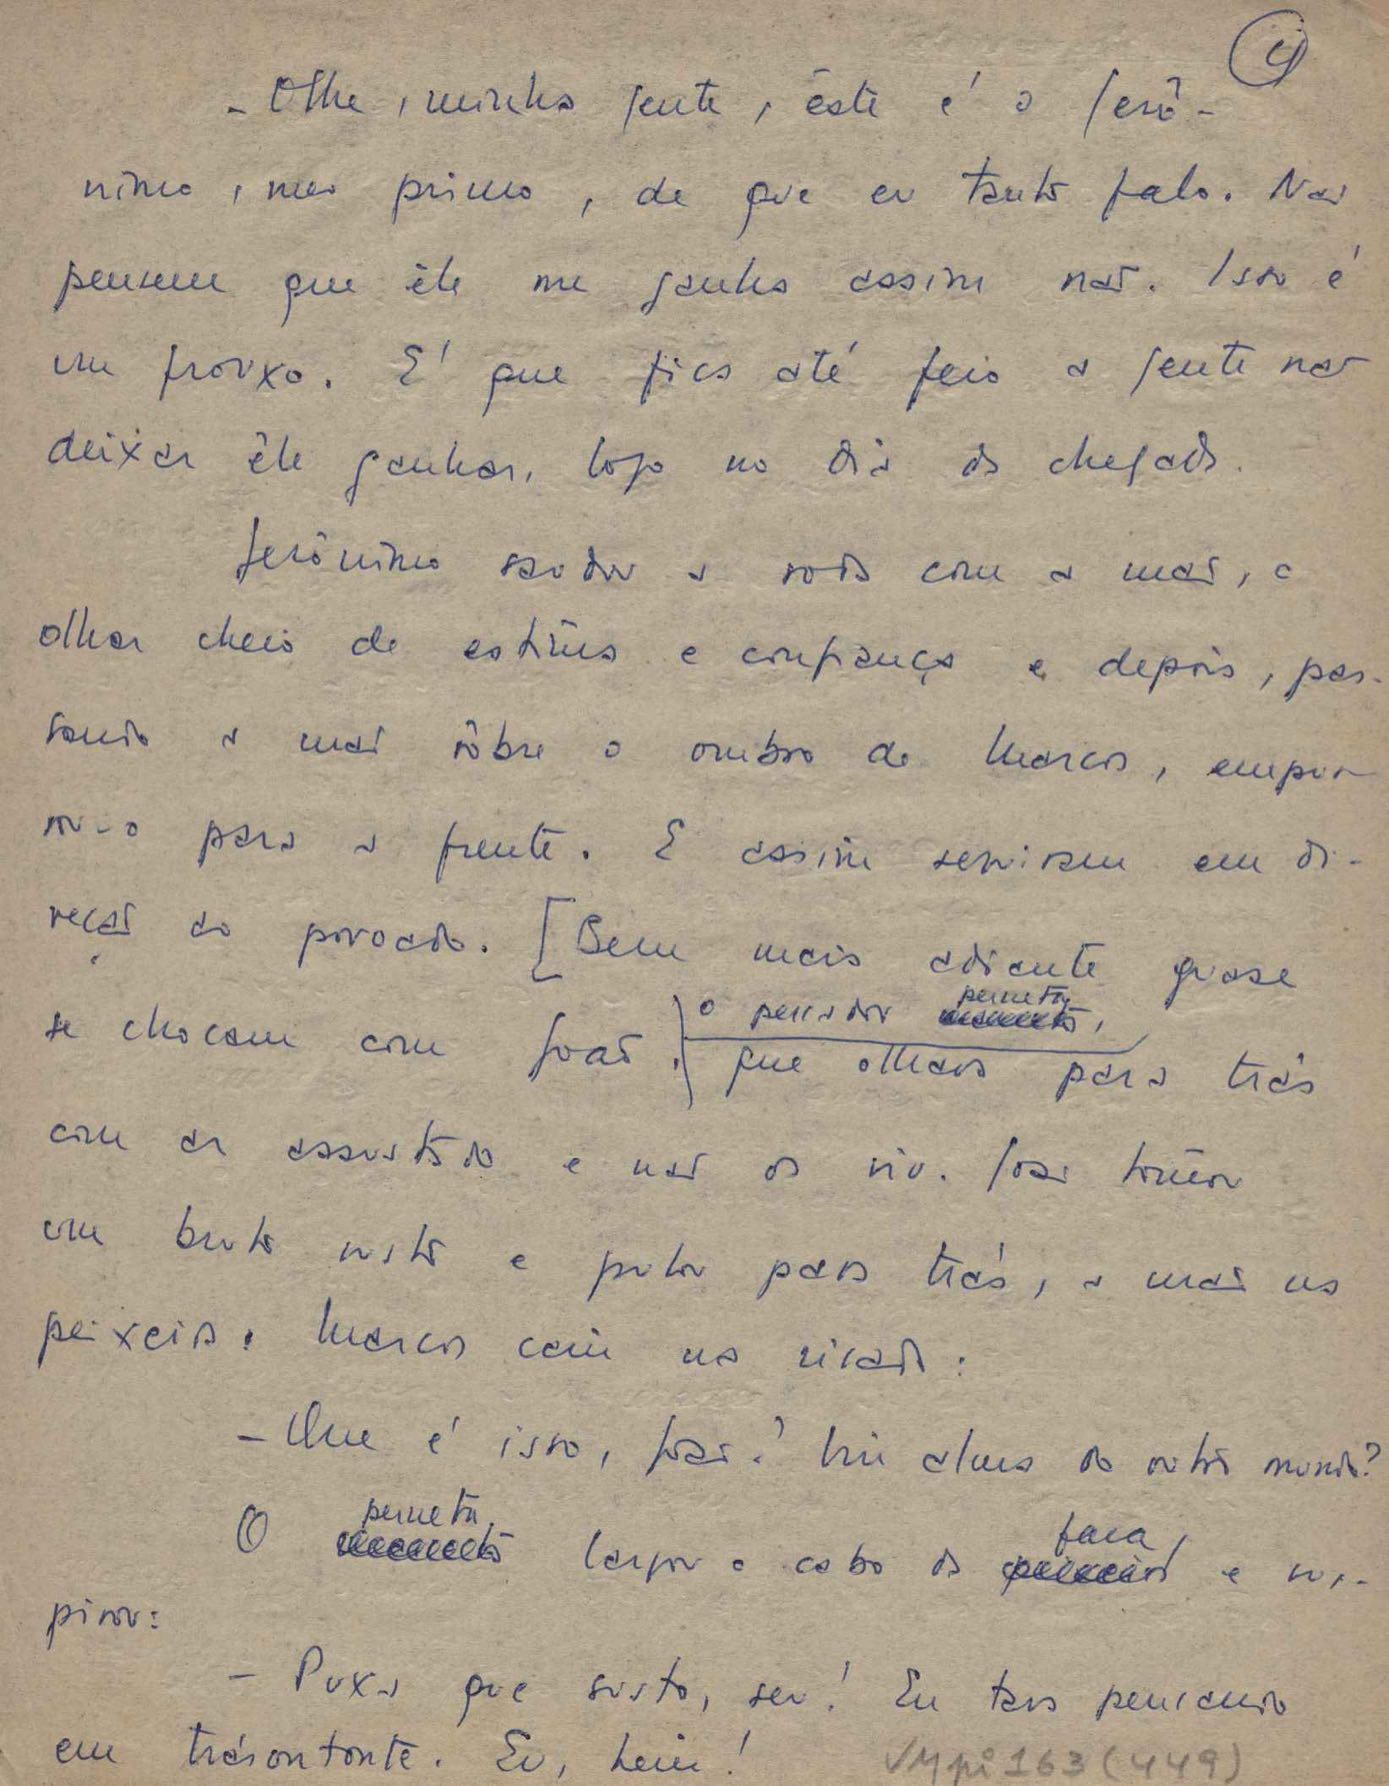 4
- Olhe, minha gente, êste é o Jerô-
nimo, meu primo, de que eu tanto falo. Não
pensem que êle me ganha assim não. Isso é
um frouxo. É que fica até feio a gente não
deixar êle ganhar, logo no dia da chegada.
Jerônimo saudou a roda com a mão, o
olhar cheio de estima e confiança e depois, pas-
sando a mão sôbre o ombro de Marcos, empur-
rou-o para a frente. E assim seguiram em di-
reção ao povoado. [Bem mais adiante quase
perneta,
o pescador
se chocam com João. que olhava para trás
com ar assustado e não os viu. João tomou
um bruto susto e pulou para trás, a mão na
peixeira. Marcos caiu na risada:
- Que é isso, João? Viu alma do outro mundo?
perneta, faca,
O largou o cabo da e sus-
pirou:
- Puxa que susto, seu! Eu tava pensando
em trásontonte. Eu, hein!
VMpi163(449)